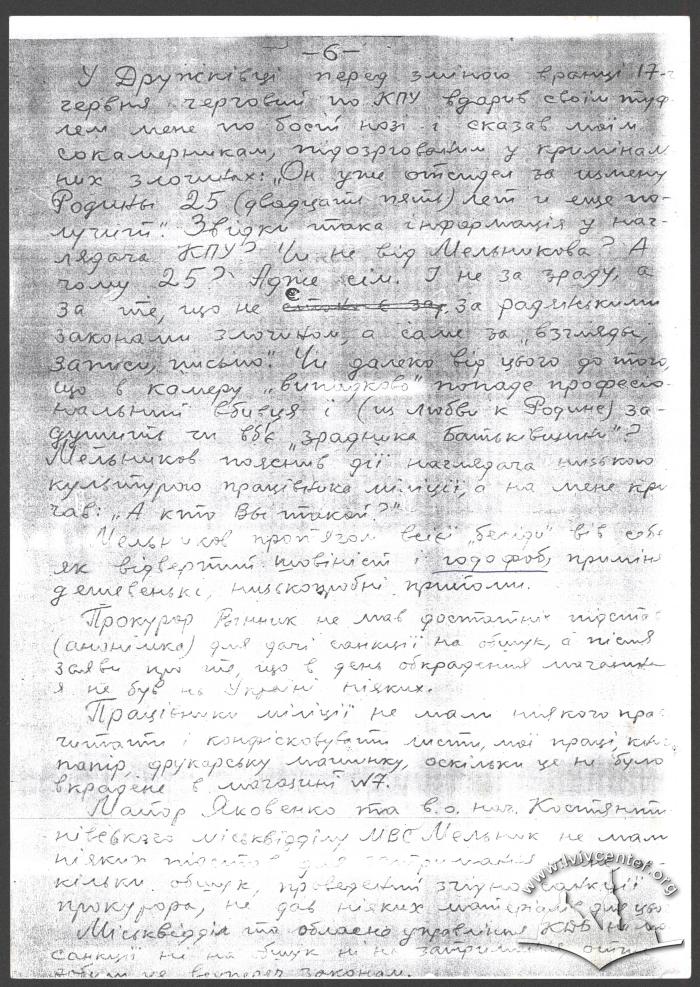 -6-
У Дружківці перед зміною вранці 17-
червня черговий по КПУ вдарив своїм туф
лем мене по босій нозі і сказав моїм
сокамерникам, підозрюваним у криміналь
них злочинах: „Он уже отсидел за измену
Родины 25 (двадцать пять) лет и еще по-
лучит". Звідки така інформація у наг-
лядача КПУ? Чи не від Мельникова? А
чому 25? Адже сім. І не за зраду, а
за те, що не є за радянськими
законами злочином, а саме за „взгляды,
записи, письмо". Чи далеко від цього до того,
що в камеру „випадково" попаде професіо-
нальний вбивця і (из любви к Родине) за-
душить чи вб'є „зрадника Батьківщини"?
Мельников пояснив дії наглядача низькою
культурою працівника міліції, а на мене кри
чав: „А кто Вы такой?"
Мельников протягом всієї „бесіди" вів себе
як відвертий шовініст і юдофоб,
дешевенькі, низькопробні прийоми.
Прокурор не мав достатніх підстав
(анонімка) для дачі санкції на обшук, а після
заяви про те, що в день обкрадення магазину
я не був на Україні ніяких.
Працівники міліції не мали ніякого пра-
читати і конфісковувати листи, мої праці,
папір, друкарську машинку, оскільки це не було
вкрадене в магазині №7.
Майор Яковенко та в.о. нач. Костянти-
нівського міськвідділу МВС Мельник не мали
ніяких підстав для затримання
кільки обшук, проведений згідно санкції
прокурора, не дав ніяких матеріалів для цьо
Міськвідділ та обласне управління КДБ не
санкції ні на обшук ні на затримання
законам.
www.lvivcenter.org